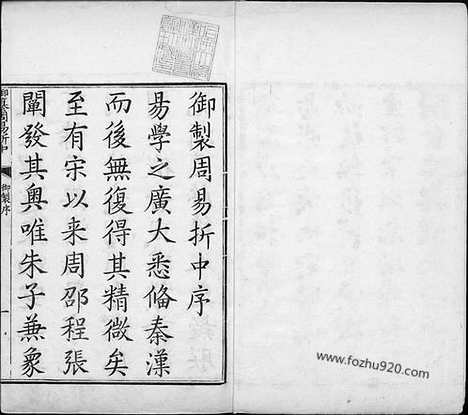 御製周易折中序
易學之廣大悉備秦漢
而後無復得其精微矣
至有宋以来周邵程張
闡發其奥唯朱子兼象
御製序
一
www.fozhu920.com